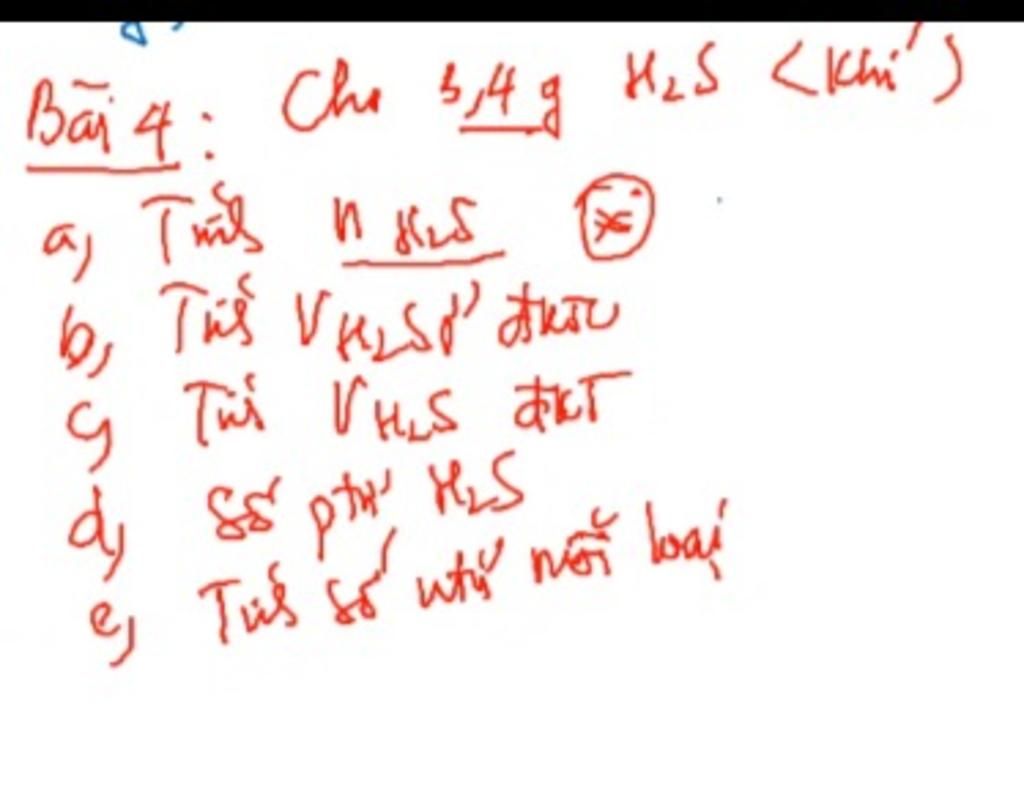 Bài 4: Cho 3,4 g H₂S (khí)
a, Tính n H₂S
b, Tính V H₂S ở đktc
c, Tính V H₂S đkt
d, Số ptử H₂S
e, Tính số ntử mỗi loại